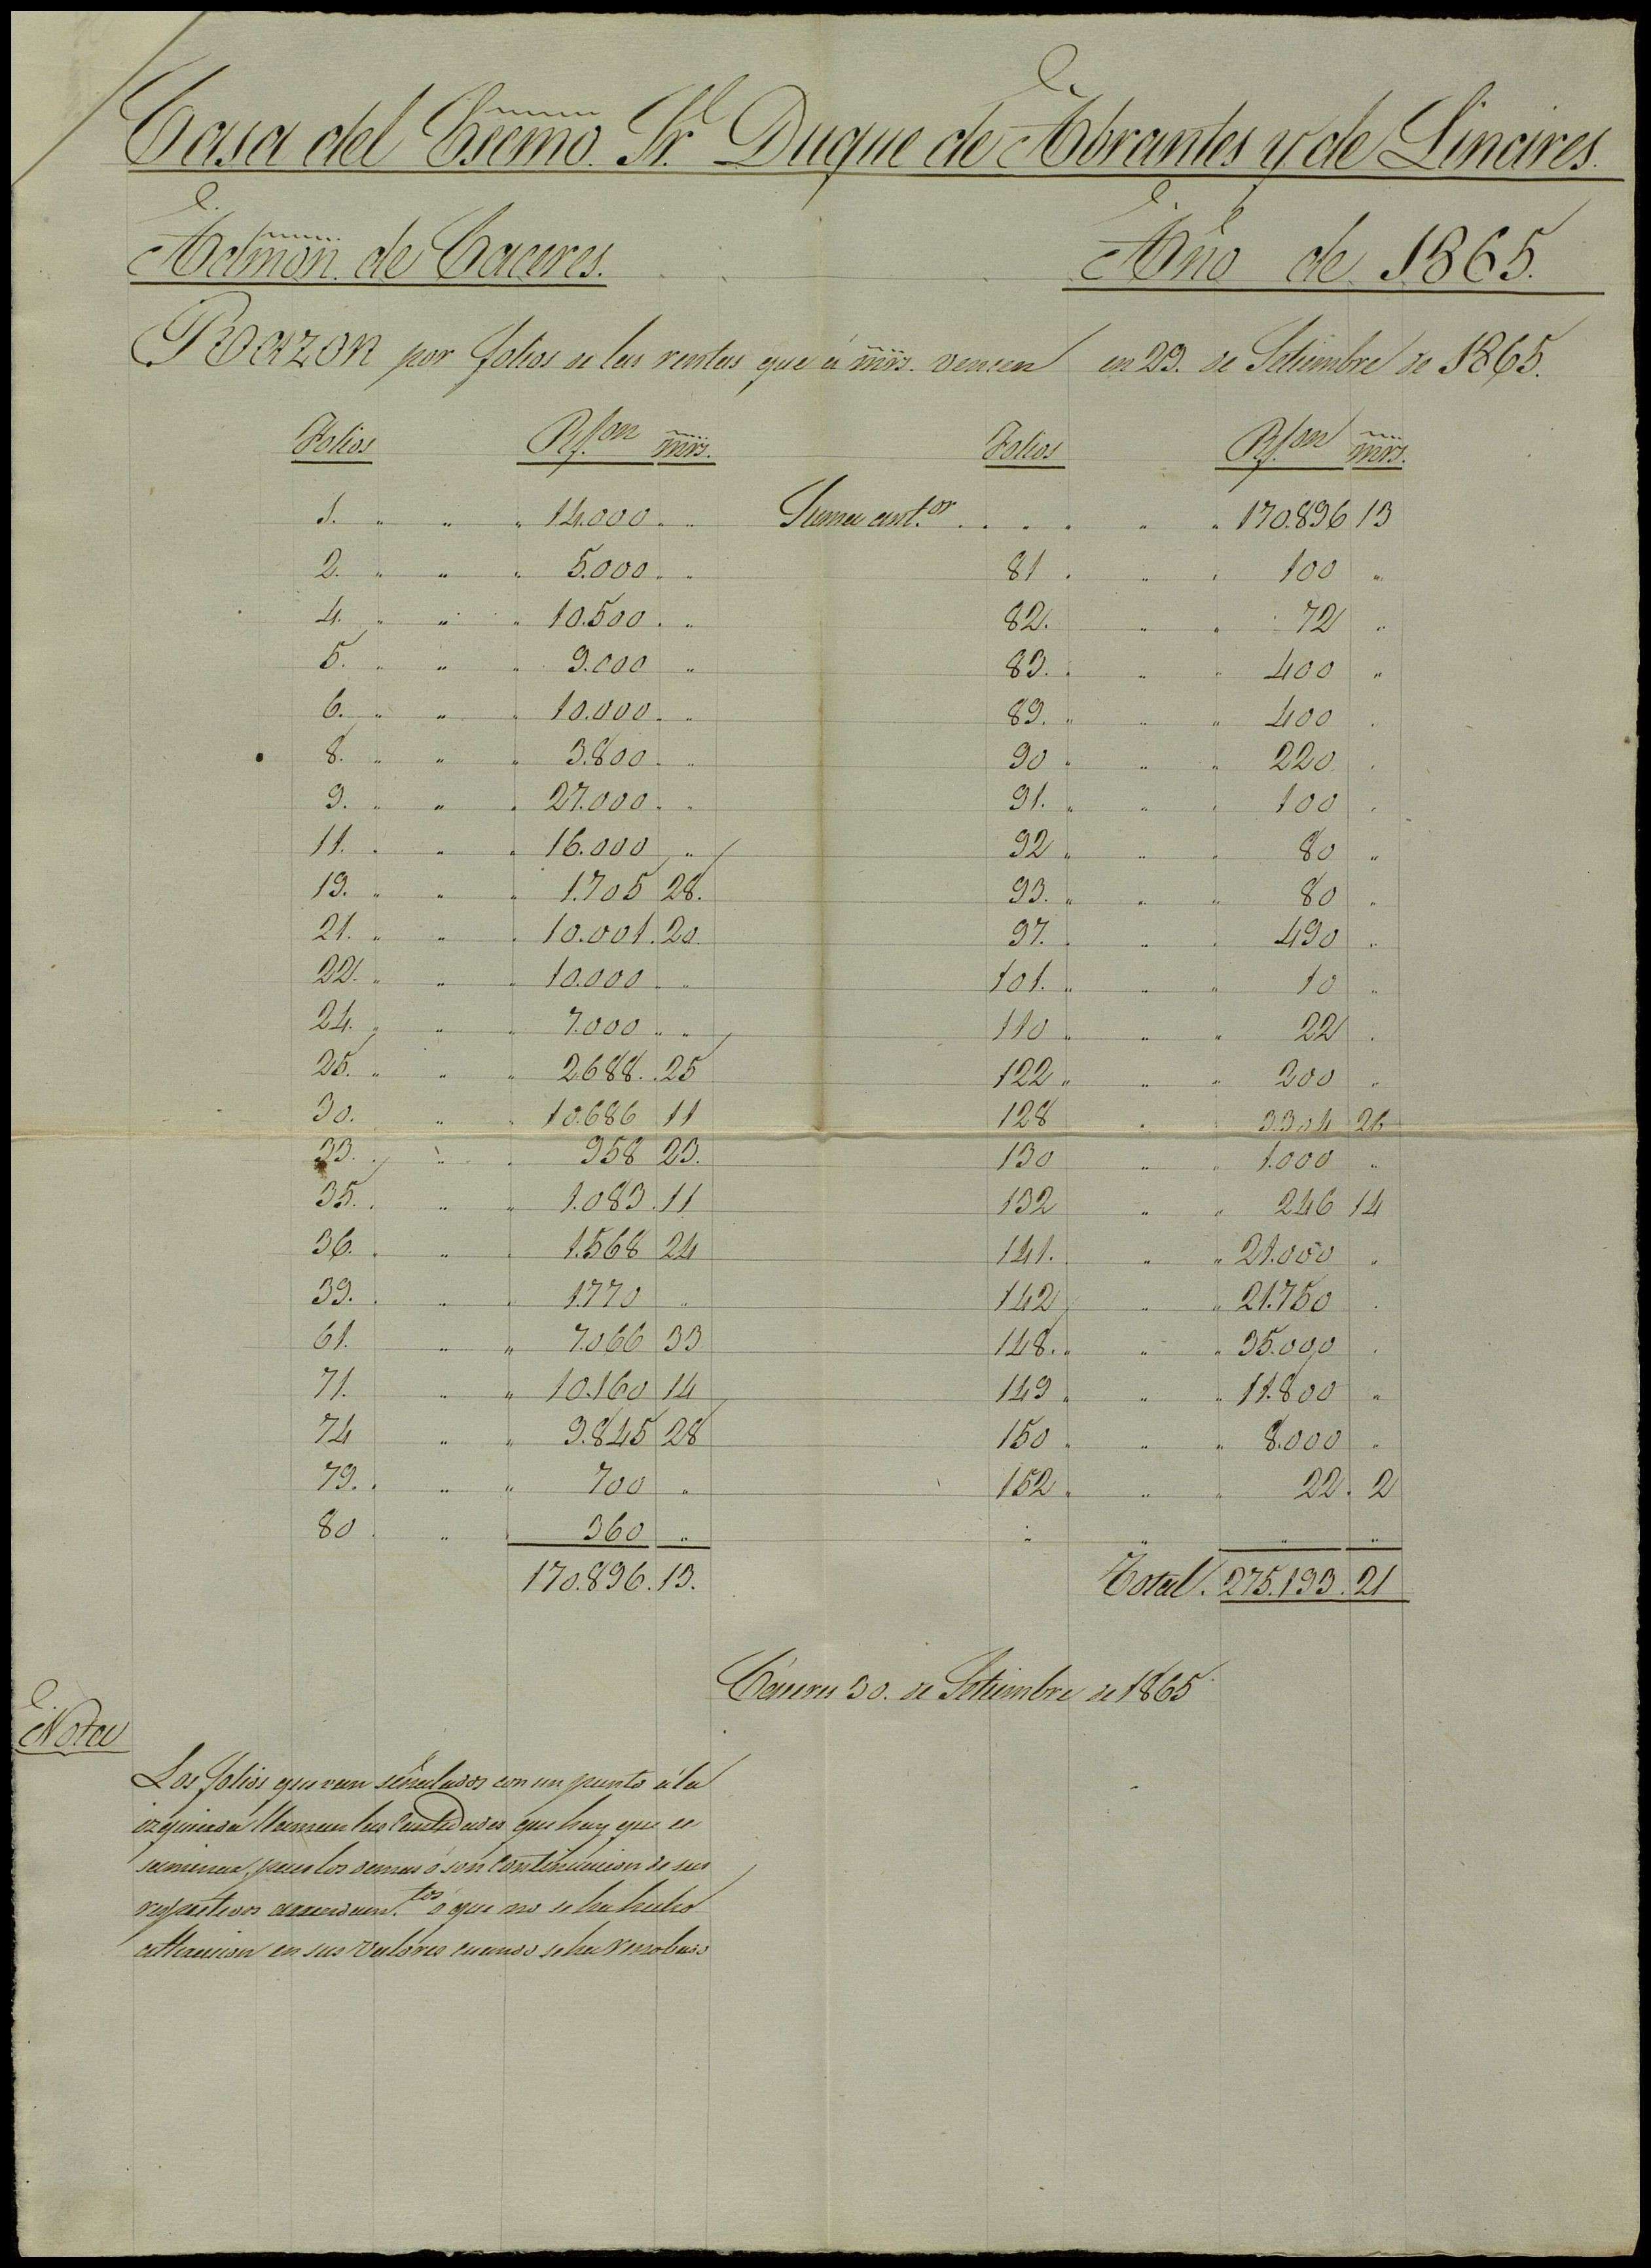 Casa del Excmo. Sr. Duque de Abrantes y de Linares.
Admon. de Caceres.
Año de 1865.
Razon por folios de las rentas que á mrs. vencen en 29. de Setiembre de 1865.
Folios Rs. on mrs.
1. " " " 14.000 . "
2. " " " 5.000 . "
4. " " " 10.500 . "
5. " " " 9.000 "
6. " " " 10.000 . "
• 8. " " " 3.800 . "
9. " " " 27.000 . "
11. " " " 16.000 "
19. " " " 1.705 28.
21. " " " 10.001. 20.
22. " " " 10.000 . "
24. " " " 7.000 " "
25. " " " 2.688. 25
30. " " 10.686 11
33. " " 958 23.
35. " " " 1.083. 11
36. " " " 1.568 24
39. " " " 1.770 "
61. " " 7.066 33
71. " " 10.160 14
74 " " 9.845 28
79. " " 700 "
80 " " 360 "
170.896. 13.
Folios Rs. on mrs.
Suma ant.or . . . . " " 170.896 13
81 . " " 100 "
82. " " 72 "
83. " " 400 "
89. " " " 400 .
90 " " " 220 .
91. " " " 100 .
92 " " " 80 "
93. " " " 80 "
97. " " 490 "
101. " " " 10 "
110 " " " 22 .
122 " " " 200 "
128 " " 3.304 26
130 " " 1.000 "
132 " " 246 14
141. " " 21.000 "
142 " " 21.750 .
148. " " " 35.000 .
149 " " " 11.800 "
150 " " " 8.000 "
152 " " " 22. 2
" " " "
Total. 275.193. 21
Cáceres 30. de Setiembre de 1865
Nota
Los folios que van señalados con un punto á la
izquierda llaman las cantidades que hay que
pues los demas ó son continuacion de sus
respectivos arrendam.tos ó que no se ha hecho
alteracion en sus valores cuando se ha renobado